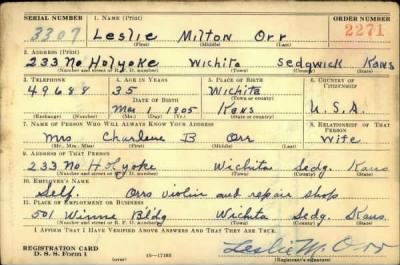 SERIAL NUMBER 1. NAME (Print) ORDER NUMBER
3307 Leslie Milton Orr 2271
(First) (Middle) (Last)
2. ADDRESS (Print)
233 No Holyoke Wichita Sedgwick Kans
(Number and street or R. F. D. number) (Town) (County) (State)
3. TELEPHONE 4. AGE IN YEARS 5. PLACE OF BIRTH 6. COUNTRY OF CITIZENSHIP
49688 35 Wichita
DATE OF BIRTH (Town or county)
Mar 1 1905 Kans U.S.A.
(Exchange) (Number) (Mo.) (Day) (Yr.) (State or country)
7. NAME OF PERSON WHO WILL ALWAYS KNOW YOUR ADDRESS 8. RELATIONSHIP OF THAT PERSON
Mrs Charlene B Orr Wife
(Mr., Mrs., Miss) (First) (Middle) (Last)
9. ADDRESS OF THAT PERSON
233 No Holyoke Wichita Sedg. Kans
(Number and street or R. F. D. number) (Town) (County) (State)
10. EMPLOYER'S NAME
Self. Orrs violin and repair shop
11. PLACE OF EMPLOYMENT OR BUSINESS
501 Winne Bldg Wichita Sedg. Kans.
(Number and street or R. F. D. number) (Town) (County) (State)
I AFFIRM THAT I HAVE VERIFIED ABOVE ANSWERS AND THAT THEY ARE TRUE.
REGISTRATION CARD Leslie M. Orr
D. S. S. Form 1 (over) (Registrant's signature)